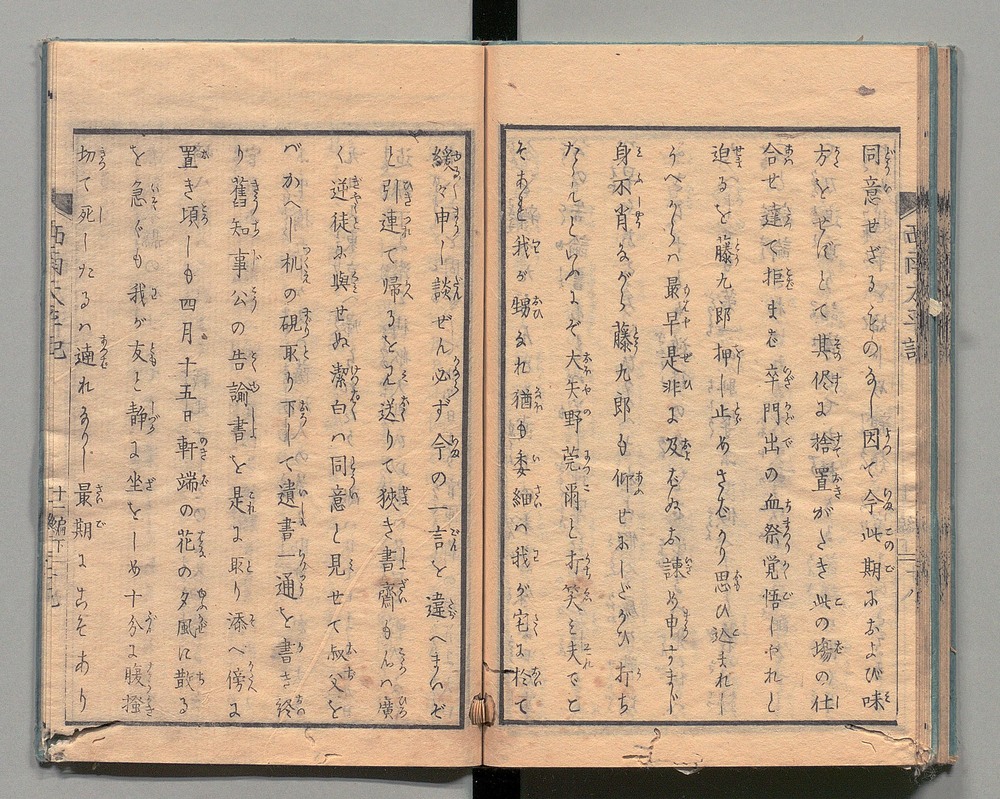 同意せざるものなし因て今此期におよび味
方をせじとて其侭に捨置がたき此の場の仕
合せ達て拒まば卒門出の血祭覚悟しやれし
迫ると藤九郎押し止めさばかり思ひ込まれ
うへからハ最早是非に及ばぬお諫め申すまじ
身不肖ながら藤九郎も仰せにしたがひ打ち
たゝんといふにぞ大矢野莞爾と打笑ミ夫でこ
そあれ我が甥なれ猶も委細ハ我が宅に於て
緩々申し談ぜん必ず今の一言を違へまいぞ
と引連て帰るを見送りて狭き書齋も心ハ廣
く逆徒に與せぬ潔白ハ同意と見せて叔父を
バかへし机の硯取り下して遺書一通を書き終
り舊知事公の告諭書を是に取り添へ傍に
置き頃しも四月十五日軒端の花の夕風に散る
を急ぐも我が友と静に坐をしめ十分に腹掻
切て死したるハ遖れなりし最期にこそあり
西南太平記
西南太平記
十一編下